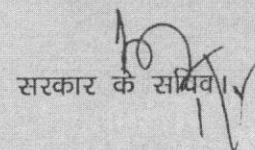 सरकार के सचिव।